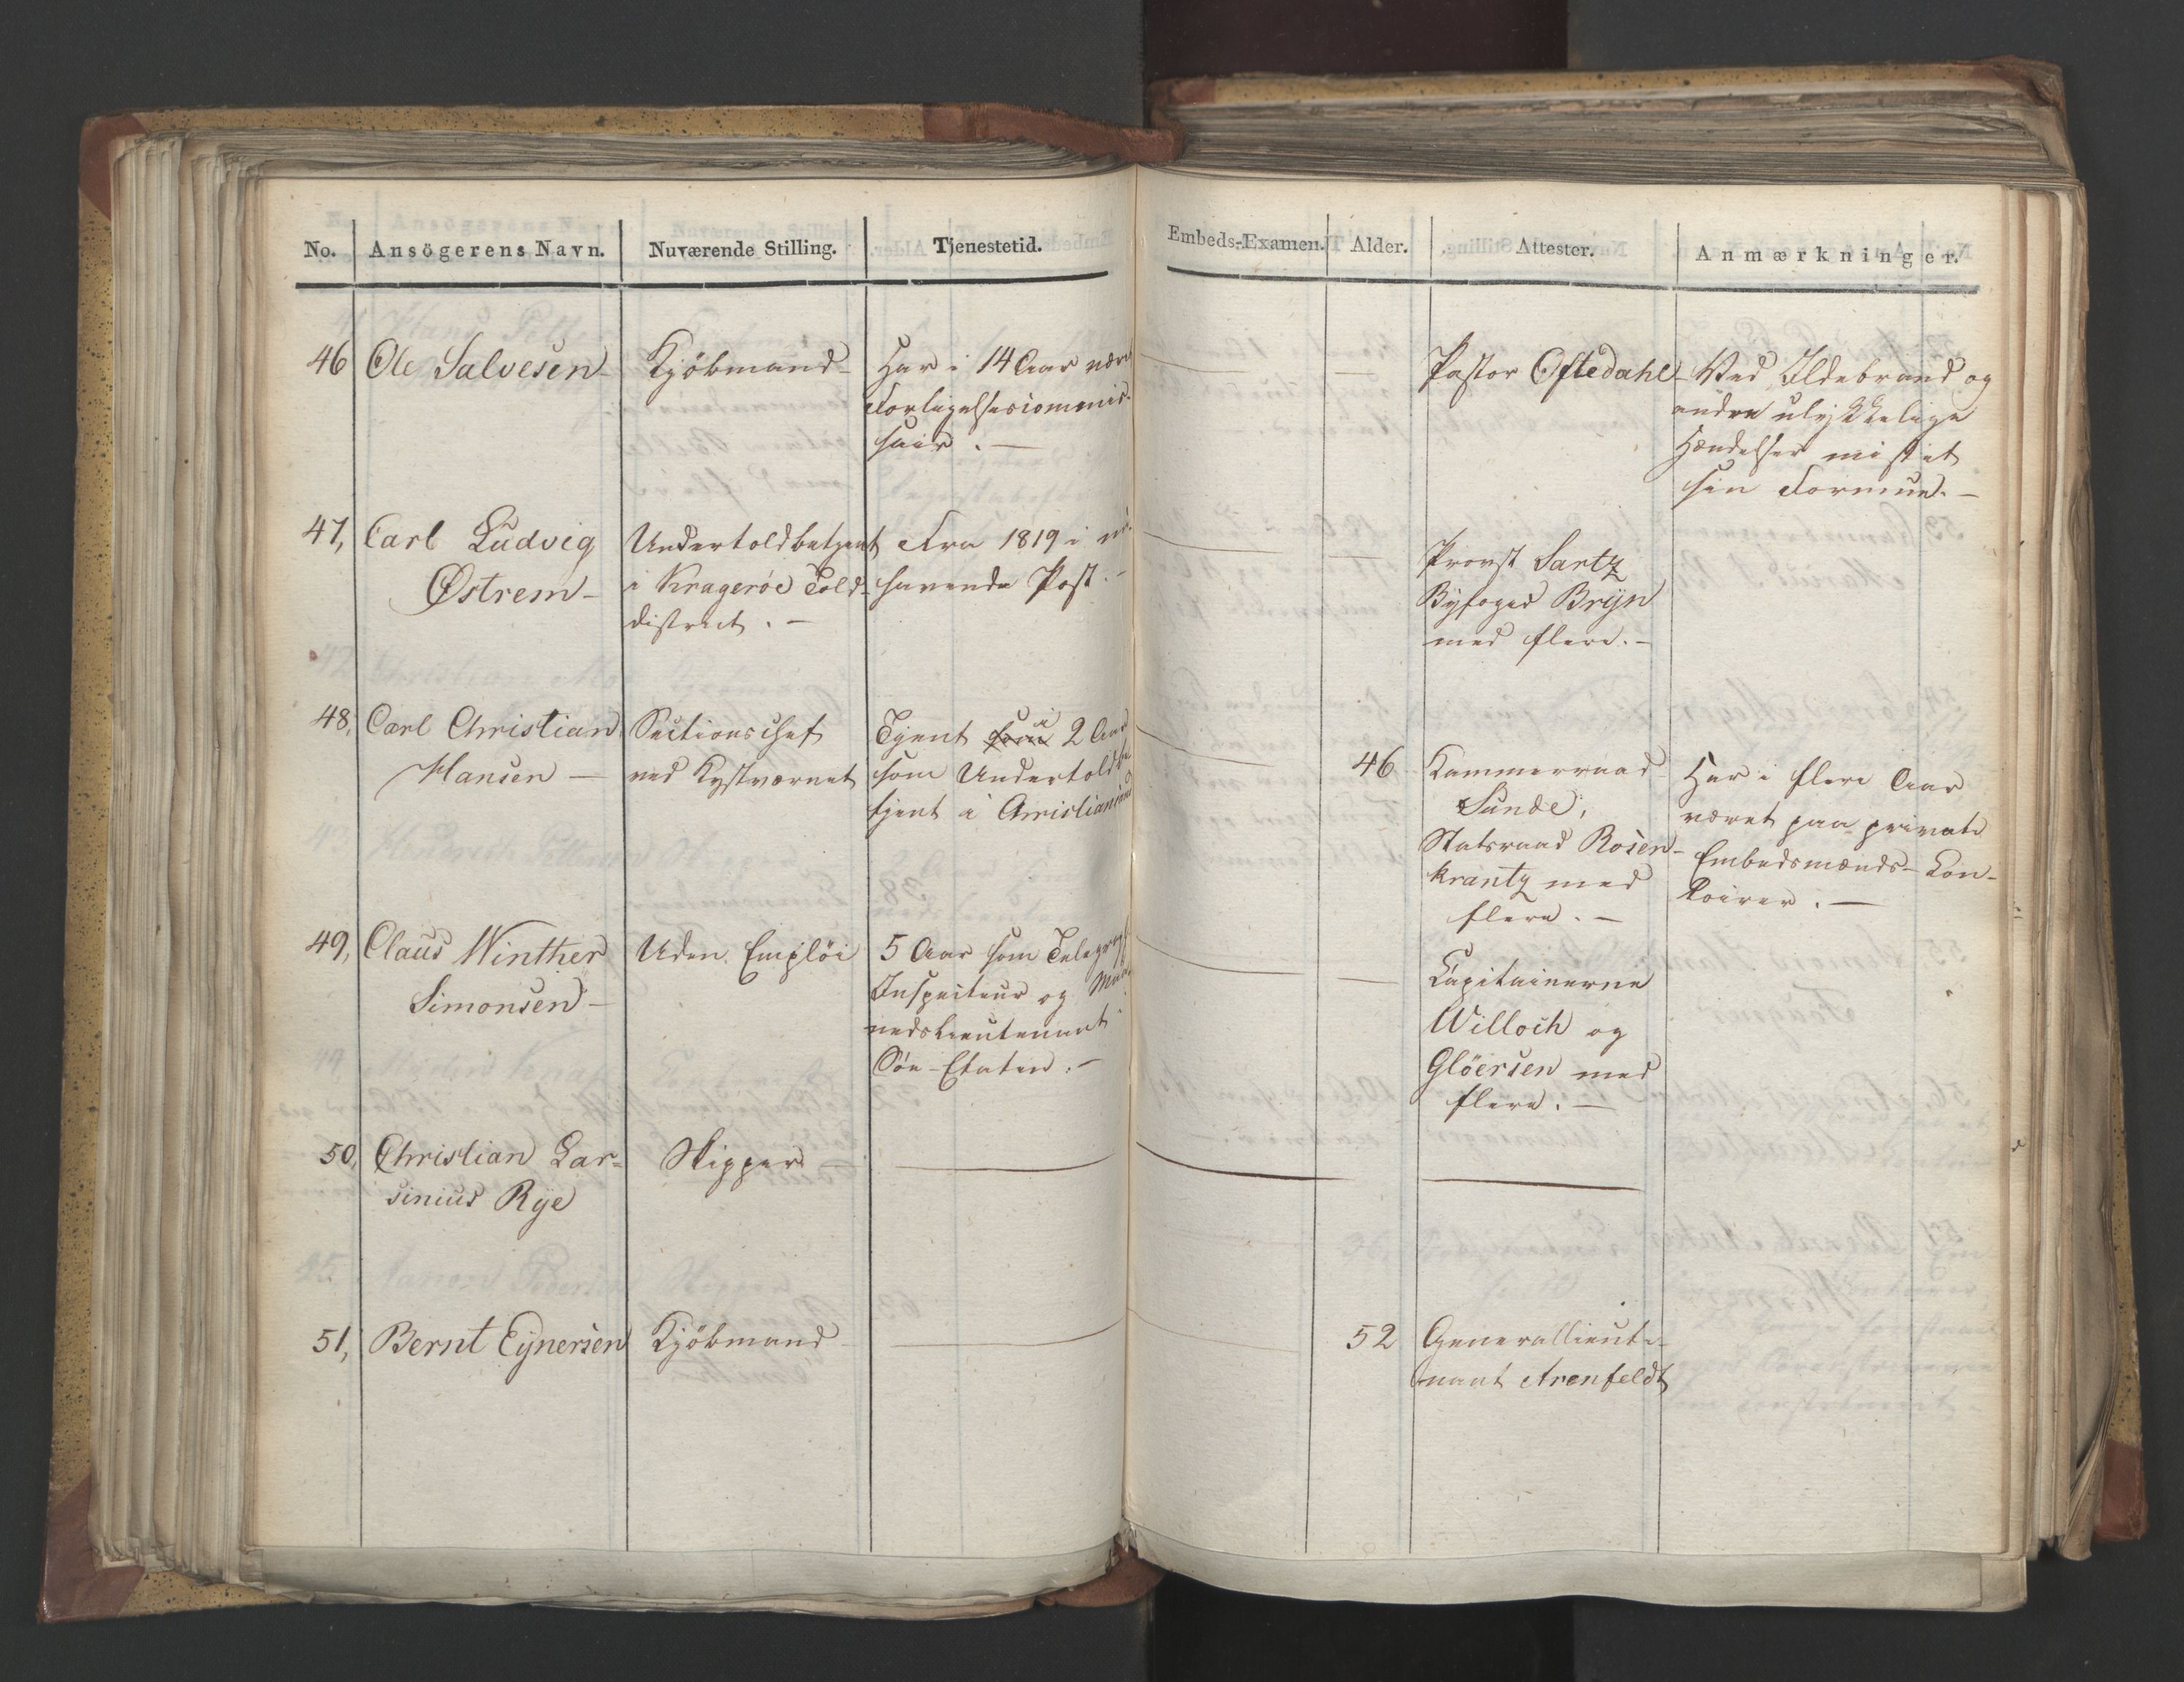 No. Ansögerens Navn. Nuværende Stilling. Tjenestetid. Embeds-Examen. Alder. Attester. Anmærkninger.
46 Ole Salvesen Kjöbmand Har i 14 Aar været
Forligelsescommis-
sair. —
— — Pastor Oftedahl Ved Ildebrand og
andre ulykkelige
Hændelser mistet
sin Formue. —
47, Carl Ludvig
Østrem
Undertoldbetjent
i Krageröe Told-
district. —
Fra 1819 i
havende Post. —
Provst Sartz
Byfoged Bryn
med flere. —
48, Carl Christian
Hansen —
Sectionschef
ved Kystværnet
Tjent i 2 Aar
som Undertoldbe
tjent i Christiansund
46 Kammerraad
Sunde,
Statsraad Rosen-
krantz med
flere. —
Har i flere Aar
været paa private
Embedsmænds-Con-
toirer. —
49, Claus Winther
Simonsen —
Uden Emplöi
5 Aar som Telegraph
Inspecteur og Maa
nedslieutenant i
Söe-Etaten. —
— Capitainerne
Willoch og
Glöersen med
flere. —
50, Christian Lar-
sinius Rye
Skipper — — —
51, Bernt Eynersen Kjöbmand — 52 Generallieute-
nant Arenfeldt